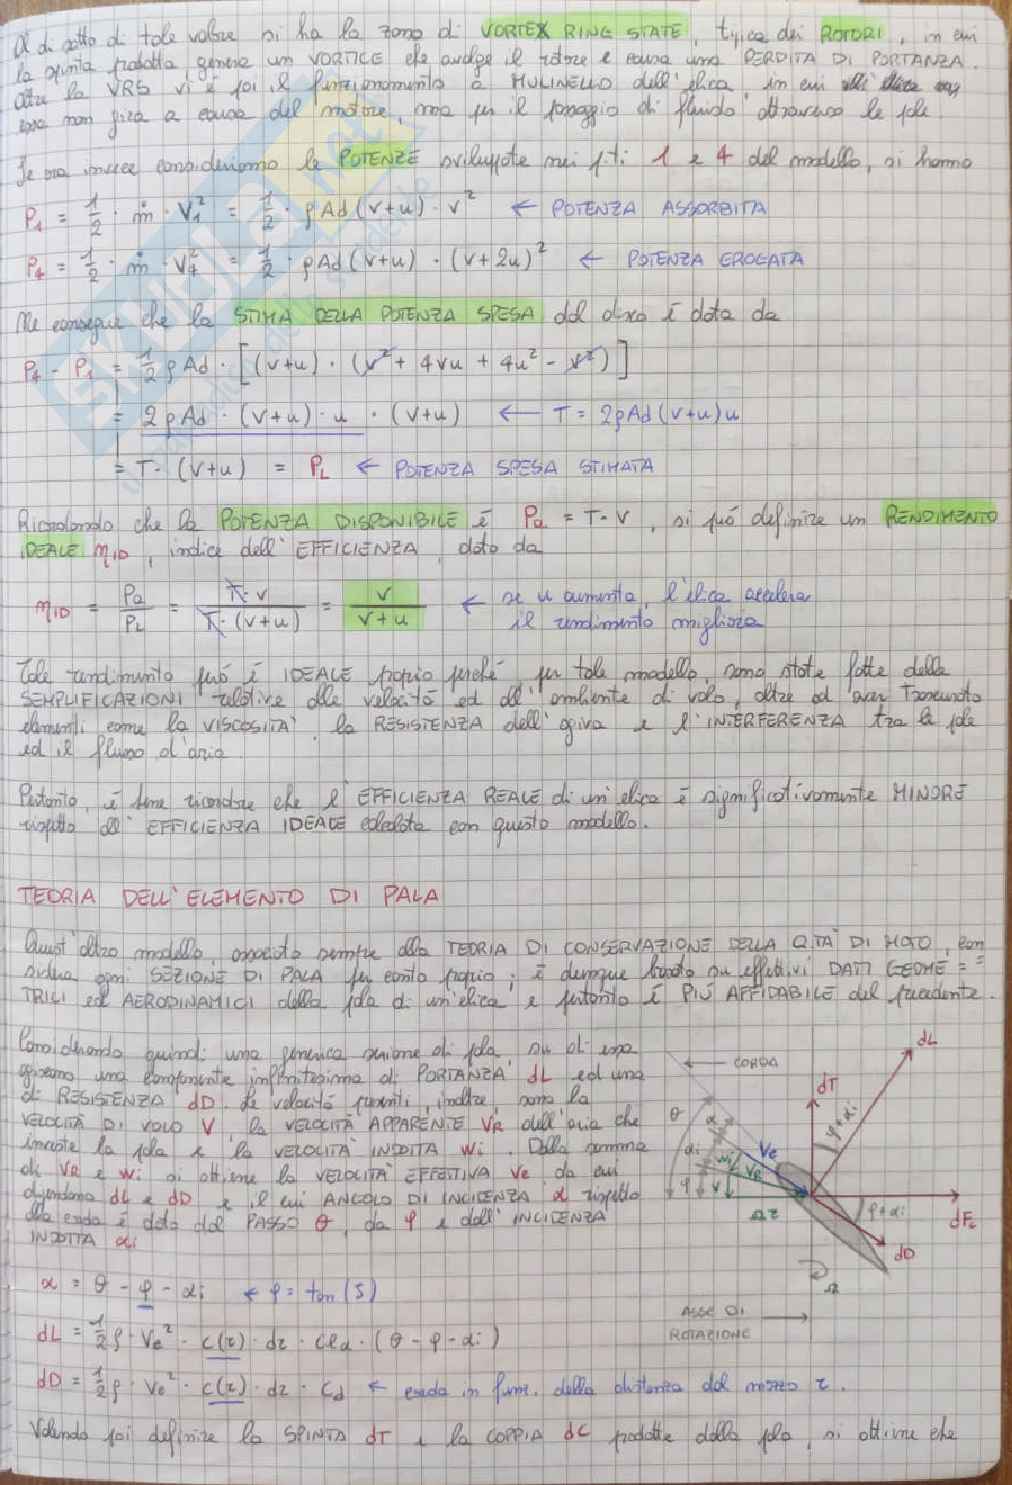 Al di sotto di tale valore si ha la zona di VORTEX RING STATE, tipica dei ROTORI, in cui
la spinta prodotta genera un VORTICE che avvolge il rotore e causa una PERDITA DI PORTANZA.
Oltre la VRS vi è poi il funzionamento a MULINELLO dell'elica, in cui
essa non gira a causa del motore, ma per il passaggio di fluido attraverso le pale.
Se ora invece consideriamo le POTENZE sviluppate nei p.ti 1 e 4 del modello, si hanno
P₁ = 1/2 · ṁ · V₁² = 1/2 · ρAd(v+u) · v² ← POTENZA ASSORBITA
P₄ = 1/2 · ṁ · V₄² = 1/2 · ρAd(v+u) · (v+2u)² ← POTENZA EROGATA
Ne consegue che la STIMA DELLA POTENZA SPESA dal disco è data da
P₄ - P₁ = 1/2 ρAd · [(v+u) · (v² + 4vu + 4u² - v²)]
= 2ρAd · (v+u) · u · (v+u) ← T = 2ρAd(v+u)u
= T · (v+u) = PL ← POTENZA SPESA STIMATA
Ricordando che la POTENZA DISPONIBILE è Pa = T·V, si può definire un RENDIMENTO
IDEALE ηID, indice dell'EFFICIENZA, dato da
ηID = Pa/PL = T·v / T·(v+u) = v / v+u ← se u aumenta, l'elica accelera
il rendimento migliora
Tale rendimento però è IDEALE proprio perché, per tale modello, sono state fatte delle
SEMPLIFICAZIONI relative alle velocità ed all'ambiente di volo, oltre ad aver trascurato
elementi come la VISCOSITÀ, la RESISTENZA dell'ogiva e l'INTERFERENZA tra le pale
ed il flusso d'aria.
Pertanto, è bene ricordare che l'EFFICIENZA REALE di un'elica è significativamente MINORE
rispetto all'EFFICIENZA IDEALE calcolata con questo modello.
TEORIA DELL'ELEMENTO DI PALA
Quest'altro modello, associato sempre alla TEORIA DI CONSERVAZIONE DELLA Q.TÀ DI MOTO, con
sidera ogni SEZIONE DI PALA per conto proprio; è dunque basato su effettivi DATI GEOME=
TRICI ed AERODINAMICI della pala di un'elica e pertanto è PIÙ AFFIDABILE del precedente.
Considerando quindi una generica sezione di pala, su di essa
agiscono una componente infinitesima di PORTANZA dL ed una
di RESISTENZA dD. Le velocità presenti, inoltre, sono la
VELOCITÀ DI VOLO V, la VELOCITÀ APPARENTE VR dell'aria che
investe la pala e la VELOCITÀ INDOTTA Wi. Dalla somma
di VR e Wi si ottiene la VELOCITÀ EFFETTIVA Ve da cui
dipendono dL e dD e il cui ANGOLO DI INCIDENZA α rispetto
alla corda è dato dal PASSO θ, da φ e dall'INCIDENZA
INDOTTA αi
CORDA
dL
dT
φ+αi
θ
α
αi
φ
Ve
Wi
VR
V
Ωr
φ+αi
dFc
dD
Ω
ASSE DI
ROTAZIONE
α = θ - φ - αi ← φ = tan(S)
dL = 1/2 ρ · Ve² · c(r) · dr · Clα · (θ - φ - αi)
dD = 1/2 ρ · Ve² · c(r) · dr · Cd ← corda in funz. della distanza dal mozzo r.
Volendo poi definire la SPINTA dT e la COPPIA dC prodotte dalla pala, si ottiene che